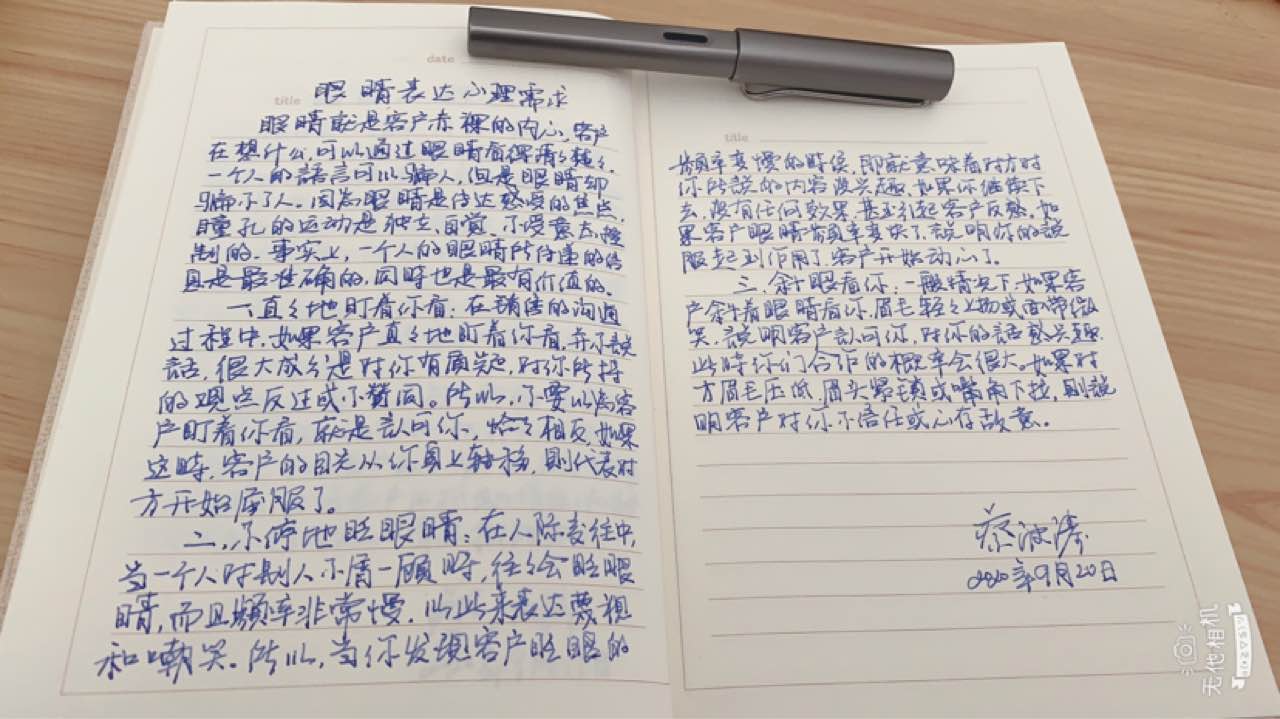 date
title
眼睛表达心理需求
眼睛就是客户赤裸的内心,客户
在想什么,可以通过眼睛看得清清楚楚,
一个人的語言可以骗人,但是眼睛却
骗不了人。因為眼睛是传达感受的焦点,
瞳孔的运动是独立、自觉、不受意志控
制的。事实上,一个人的眼睛所传递的信
息是最准确的,同时也是最有价值的。
一、直々地盯着你看:在销售的沟通
过程中,如果客户直々地盯着你看,并不說
話,很大成分是对你有质疑,对你所持
的观点反过或不赞同。所以,不要以為客
户盯着你看,就是認可你,恰々相反,如果
这時,客户的目光从你身上转移,則代表对
方开始屈服了。
二、不停地眨眼睛:在人际交往中,
当一个人对别人不屑一顾時,往々会眨眼
睛,而且频率非常慢,以此来表达蔑视
和嘲笑。所以,当你发现客户眨眼的
title
频率变慢的時候,那就意味着对方对
你所說的内容没兴趣,如果你继续下
去,没有任何效果,甚至引起客户反感。如
果客户眼睛频率变快了,說明你的說
服起到作用了,客户开始动心了。
三、斜眼看你:一般情况下,如果客
户斜着眼睛看你,眉毛轻々上扬或面带微
笑,說明客户認可你,对你的話感兴趣,
此時你们合作的概率会很大。如果对
方眉毛压低,眉头紧锁或嘴角下拉,則說
明客户对你不信任或心存敌意。
蔡波涛
2020年9月20日
无他相机